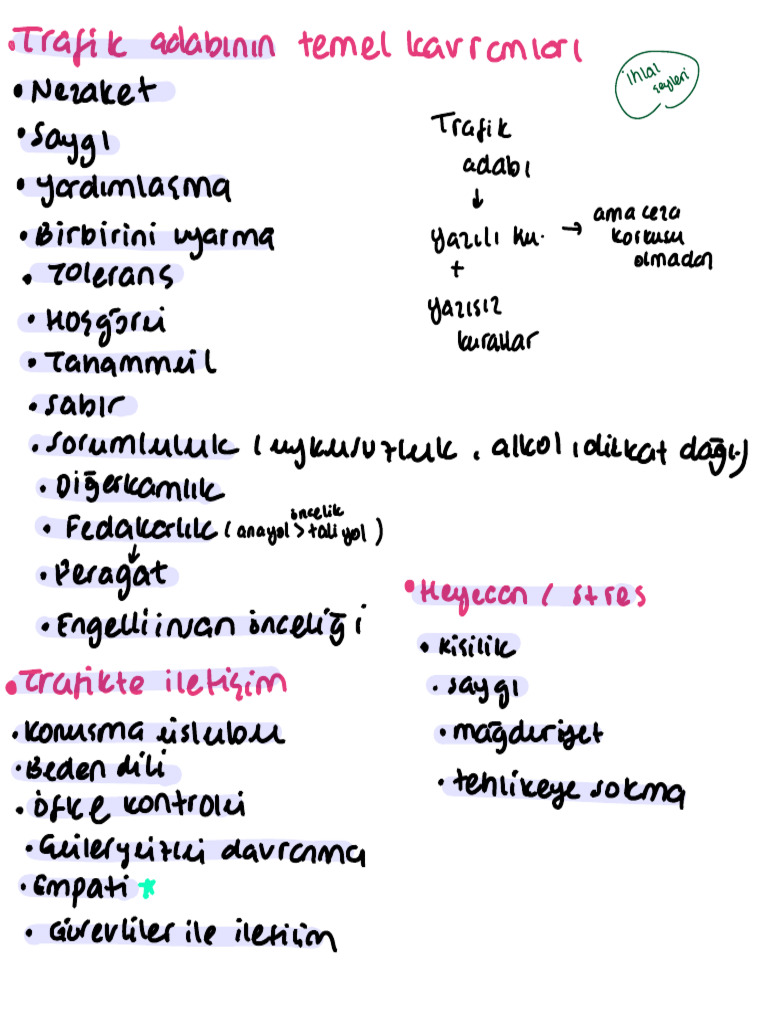 • Trafik adabının temel kavramları
• Nezaket
• Saygı
• Yardımlaşma
• Birbirini uyarma
• Tolerans
• Hoşgörü
• Tahammül
• Sabır
• Sorumluluk (uykusuzluk, alkol, dikkat dağı.)
• Diğerkamlık
• Fedakarlık (anayol > tali yol)
öncelik
↓
• Feragat
• Engelli insan önceliği
ihlal
şeyleri
Trafik
adabı
↓
yazılı ku. → ama ceza
korkusu
olmadan
+
yazısız
kurallar
• Trafikte iletişim
• Konuşma üslubu
• Beden dili
• Öfke kontrolü
• Güleryüzlü davranma
• Empati *
• Görevliler ile iletişim
• Heyecan / stres
• Kişilik
• saygı
• mağduriyet
• tehlikeye sokma